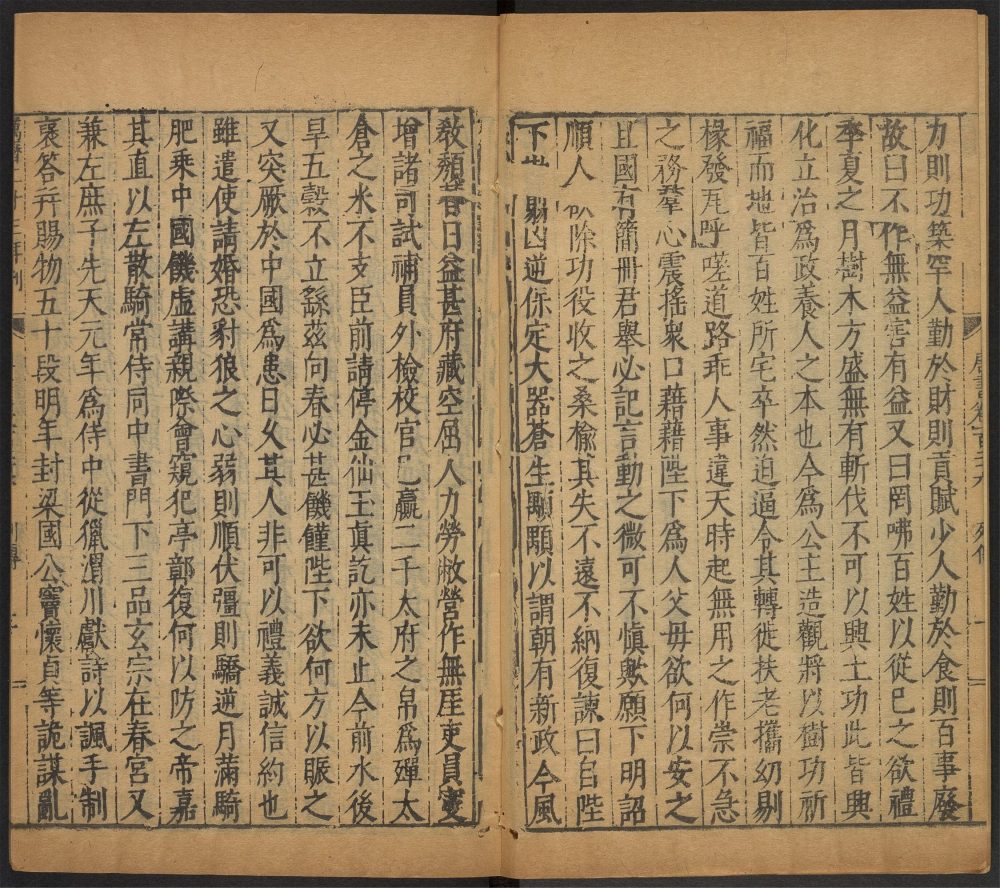 力則功築罕人勤於財則貢賦少人勤於食則百事廢
故曰不作無益害有益又曰罔咈百姓以從巳之欲禮
季夏之月樹木方盛無有斬伐不可以興土功此皆興
化立治爲政養人之本也今爲公主造觀將以樹功祈
福而地皆百姓所宅卒然迫逼令其轉徙扶老攜幼剔
椽發瓦呼嗟道路乖人事違天時起無用之作崇不急
之務羣心震搖衆口藉藉陛下爲人父母欲何以安之
且國有簡冊君舉必記言動之微可不愼歟願下明詔
順人 除功役收之桑榆其失不遠不納復諫曰自陛
下 翦凶逆保定大器蒼生顒顒以謂朝有新政今風
敎頹 日益甚府藏空屈人力勞敝營作無厓吏員寖
增諸司試補員外檢校官巳贏二千太府之帛爲殫太
倉之米不支臣前請停金仙玉眞訖亦未止今前水後
旱五穀不立繇茲向春必甚饑饉陛下欲何方以賑之
又突厥於中國爲患日久其人非可以禮義誠信約也
雖遣使請婚恐豺狼之心弱則順伏彊則驕逆月滿騎
肥乘中國饑虛講親際會窺犯亭鄣復何以防之帝嘉
其直以左散騎常侍同中書門下三品玄宗在春宮又
兼左庶子先天元年爲侍中從獵渭川獻詩以諷手制
襃答幷賜物五十段明年封梁國公竇懷貞等詭謀亂